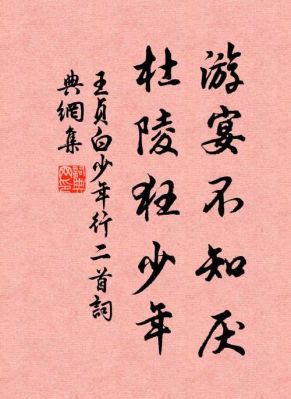 游宴不知厌
杜陵狂少年
王貞白少年行二首詞
典網集